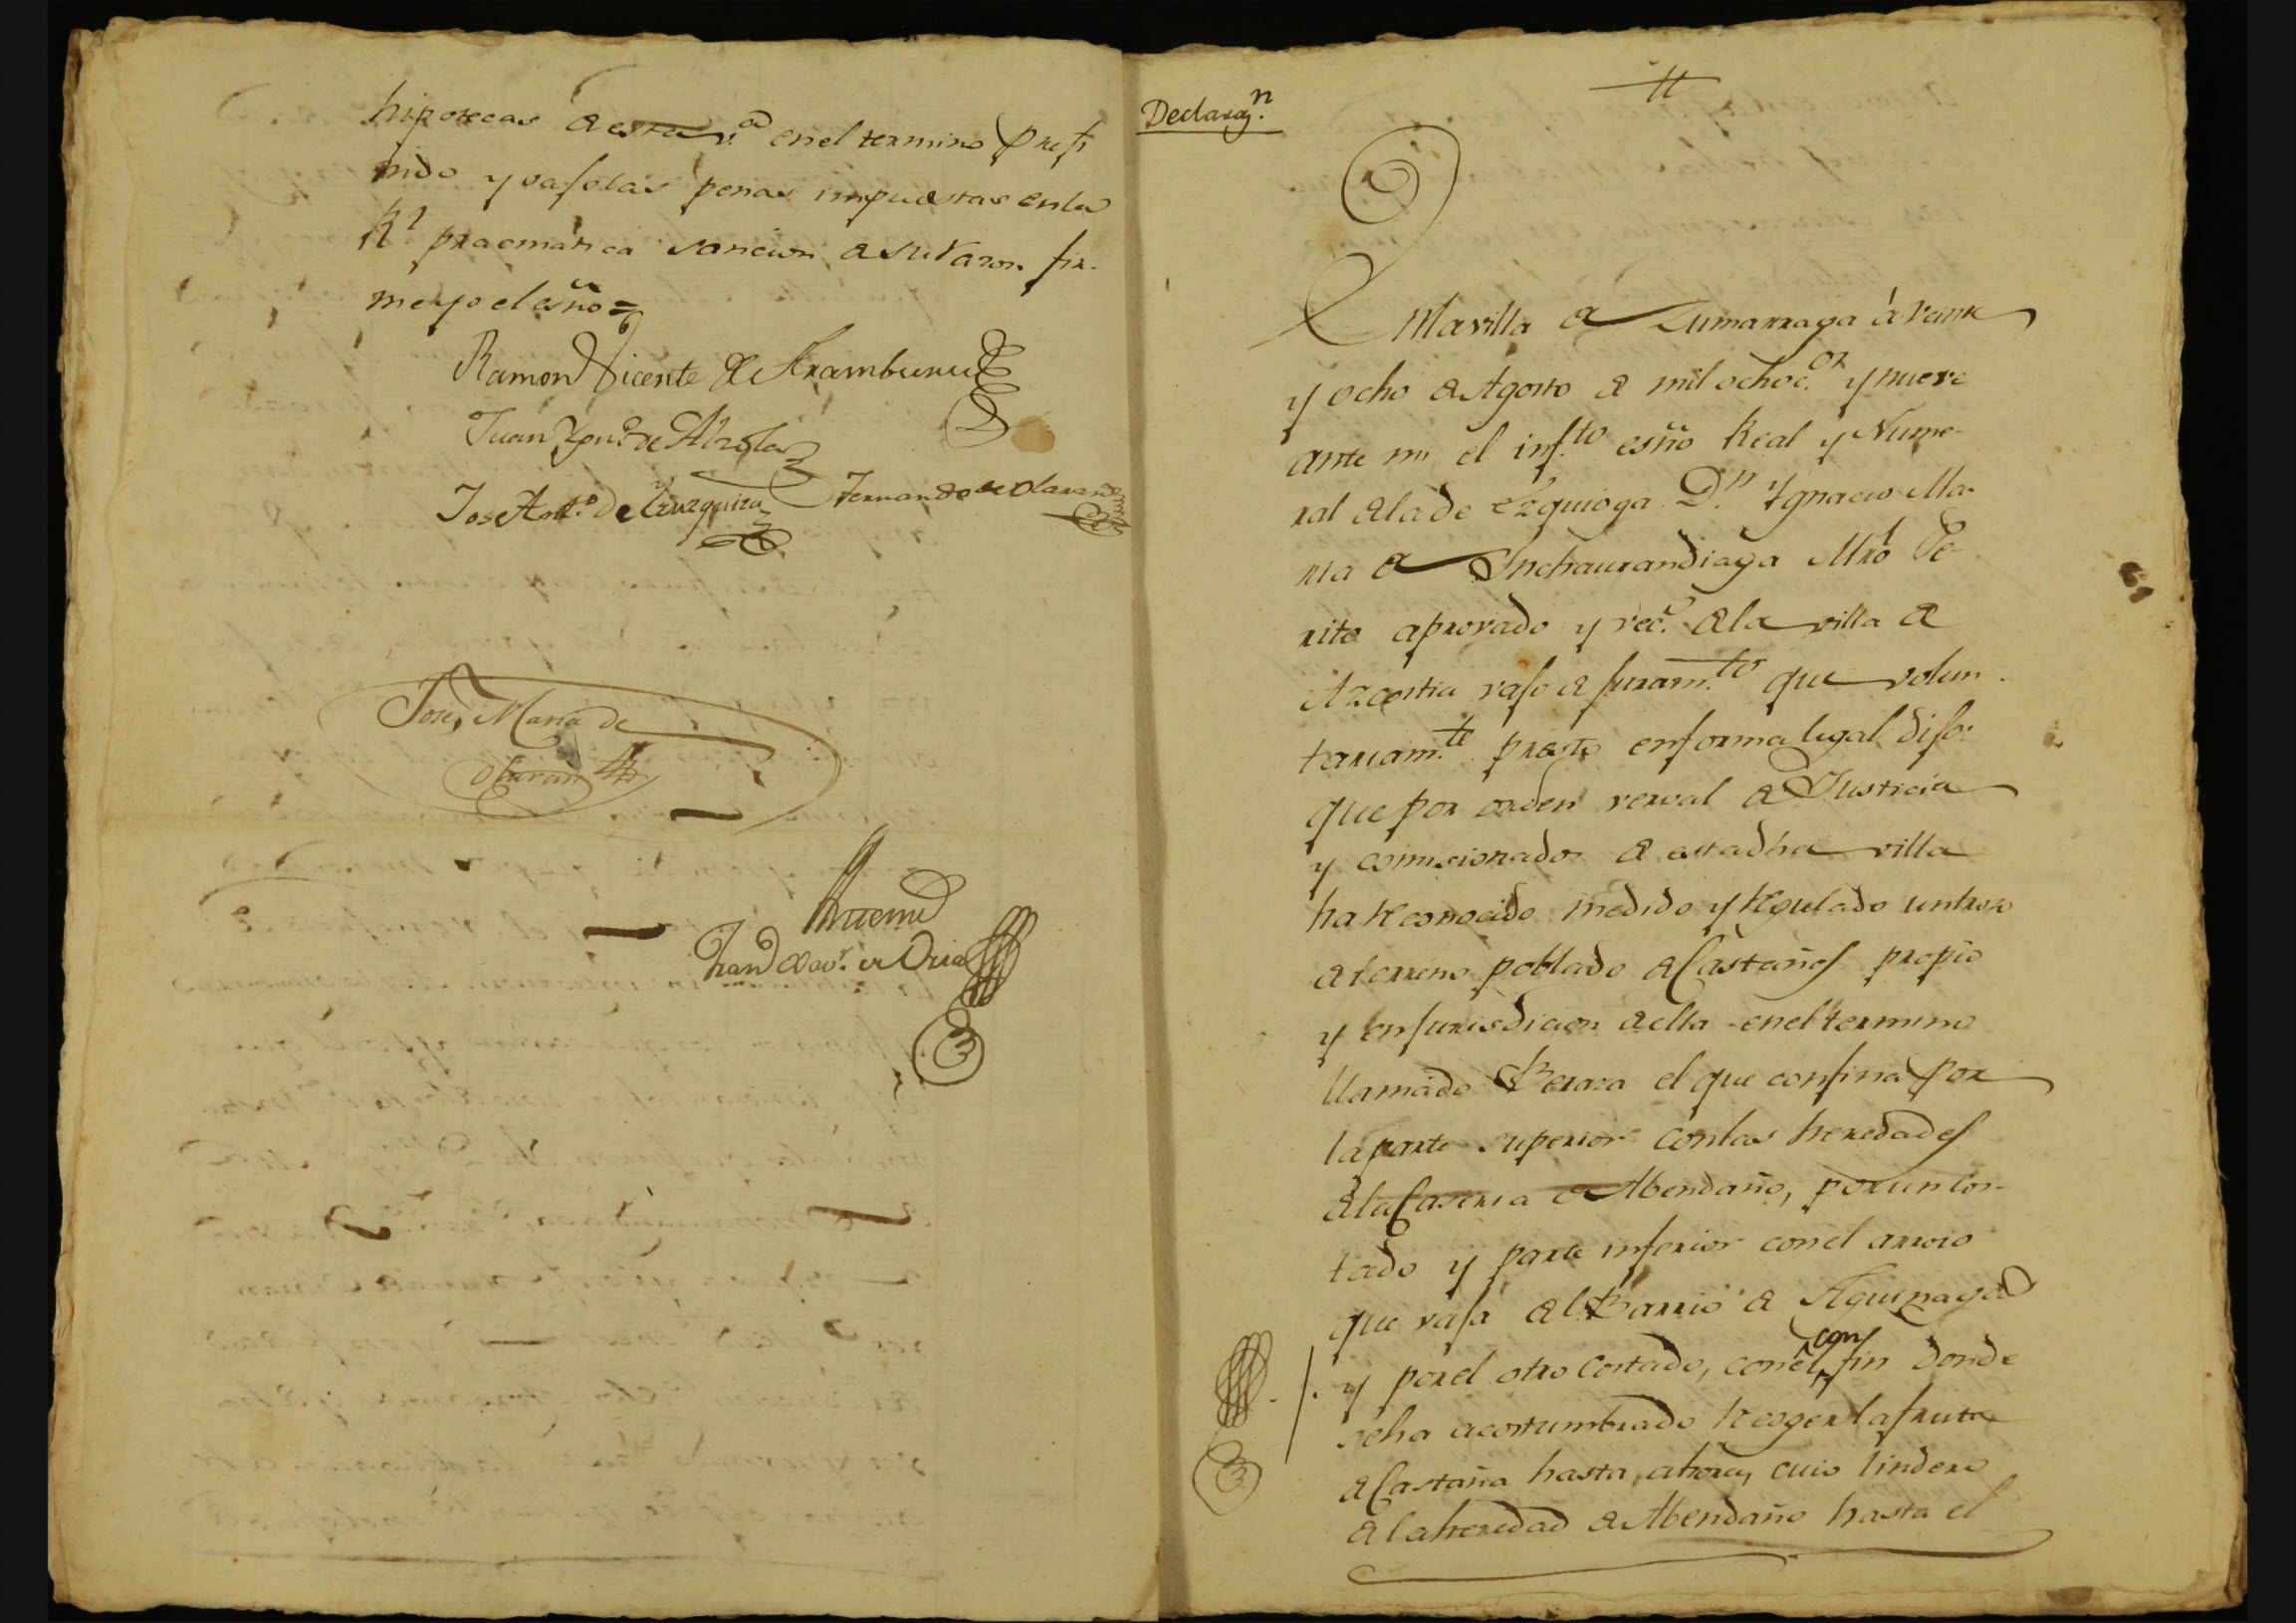 hipotecas de esta v.ª en el termino prefi
nido y vajo las penas impuestas en la
R.l pracmatica sancion de su razon fir-
me yo el esño=
Ramon Vicente de Aramburu
Juan Ygn.º de Alzola
Jose Ant.º de Yzuzquiza Fernando de Olaran
Jose Maria de
Olaran
Antemi
Fran Xav.r de Oria
Declaraz.n
En la villa de Zumarraga à veinte
y ocho de Agosto de mil ochoc.os y nueve
ante mi el inf.to esño Real y Nume-
ral de la de Ezquioga D.n Ygnacio Ma-
ria de Ynchaurandiaga Mro Pe-
rito aprovado y vec.º de la villa de
Azcoitia vajo de juram.to que volun-
tariam.te presto en forma legal dijo:
que por orden verval de Justicia
y comisionados de esta dha villa
ha reconocido medido y regulado un trozo
de terreno poblado de Castaños propio
y en jurisdicion de ella en el termino
llamado Beraza el que confina por
la parte superior con las heredades
de la Caseria de Abendaño, por un cos-
tado y parte inferior con el arroio
que vaja del Barrio de Aguinaga
y por el otro costado, con el confin donde
se ha acostumbrado recoger la fruta
de Castaña hasta ahora, cuio lindero
de la heredad de Abendaño hasta el